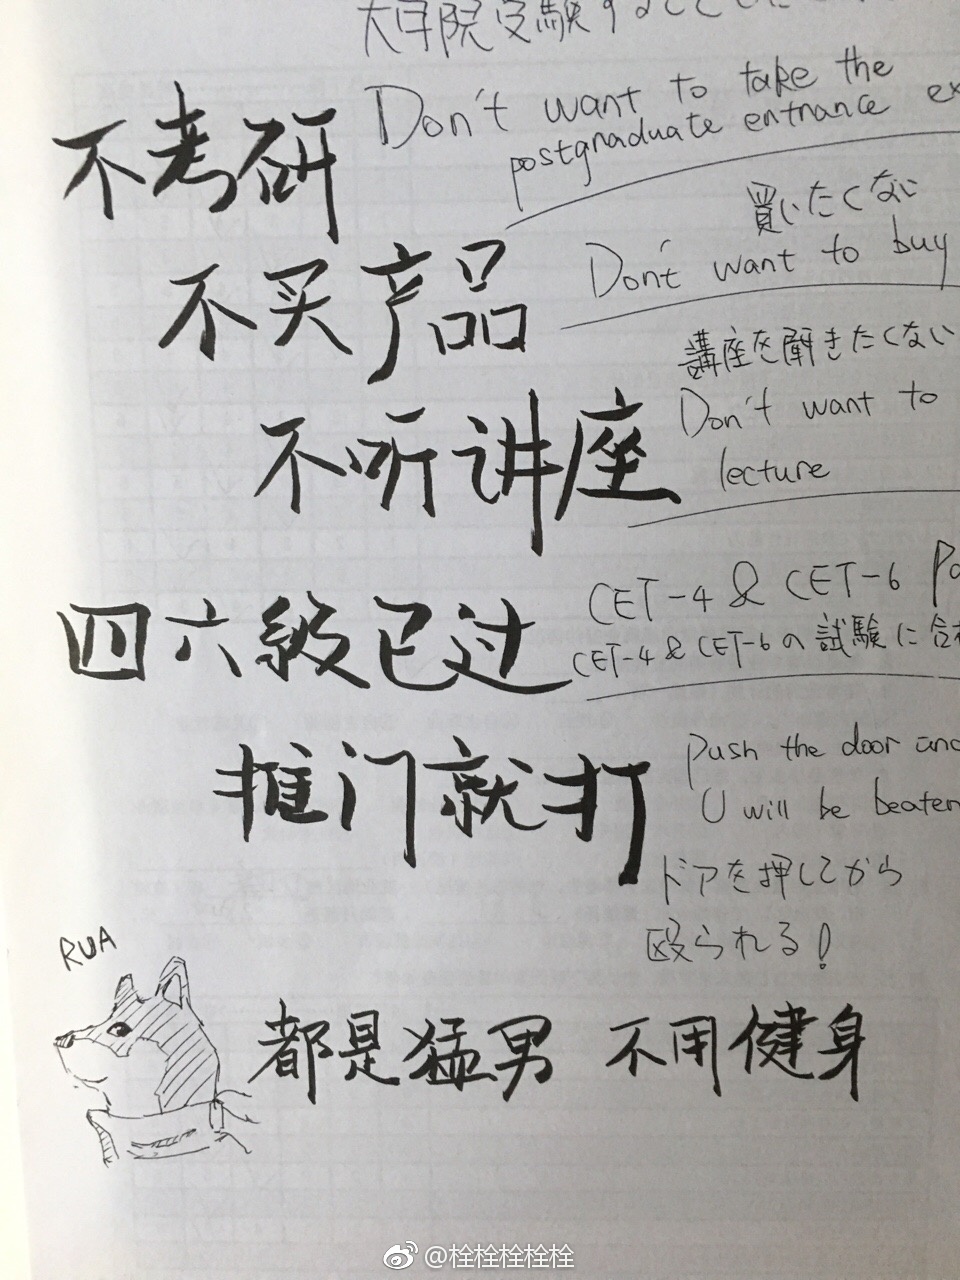 大学院受験する
不考研
Don't want to take the
postgraduate entrance
買いたくない
不买产品
Don't want to buy
講座を聞きたくない
不听讲座
Don't want to
lecture
CET-4 & CET-6
四六级已过
CET-4 & CET-6の試験に合格
推门就打
Push the door and
U will be beaten
ドアを押してから
殴られる!
RUA
都是猛男 不用健身
@栓栓栓栓栓